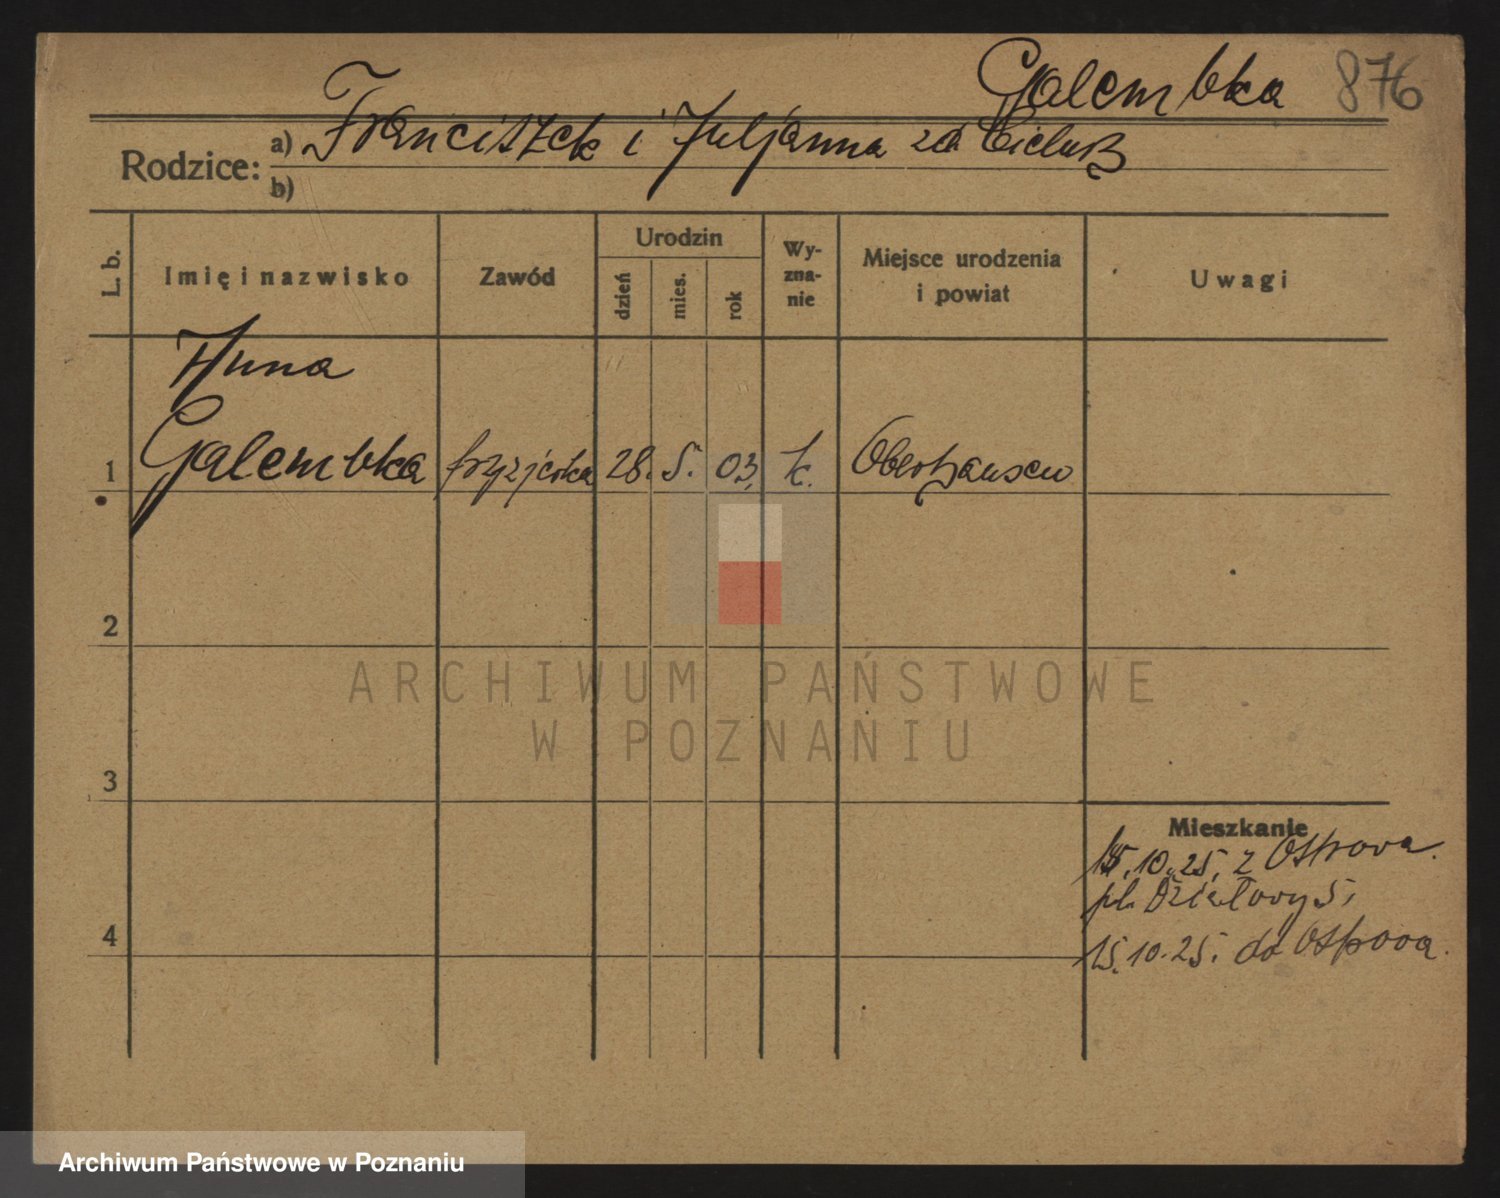 Galembka 876
Rodzice: a) Franciszek i Juljanna zd
b)
L. b.
Imię i nazwisko
Zawód
Urodzin
dzień
mies.
rok
Wy-
zna-
nie
Miejsce urodzenia
i powiat
Uwagi
Anna
1 Galembka fryzjerka 28. 5. 03. k. Oberhausen
2
3
4
Mieszkanie
15.10.25. z Ostrowa.
pl. Działowy 5.
15.10.25. do Ostrowa.
ARCHIWUM PAŃSTWOWE
W POZNANIU
Archiwum Państwowe w Poznaniu